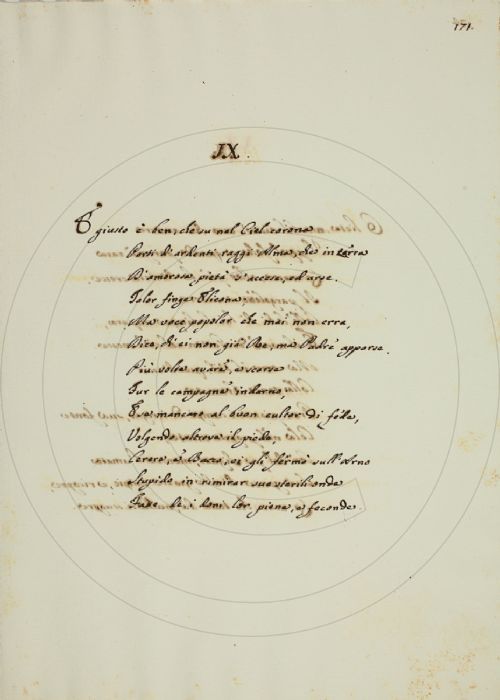 171.
IX.
E giusto è ben, che su nel Ciel corona
Porti d'ardenti raggi Alma, che in terra
D'amorosa pietà s'accese, ed arse.
Talor finge Elicona;
Ma voce popolar che mai non erra,
Dice, ch'ei non già Re, ma Padre apparse.
Più volte avare, e scarse
Fur le campagne indarno,
E a mancare al buon cultor di fede,
Volgendo altrove il piede,
Cerere, e Bacco, ei gli fermò sull'Arno
Stupido in rimirar sue sterili onde
Farsi de i doni lor piene, e feconde